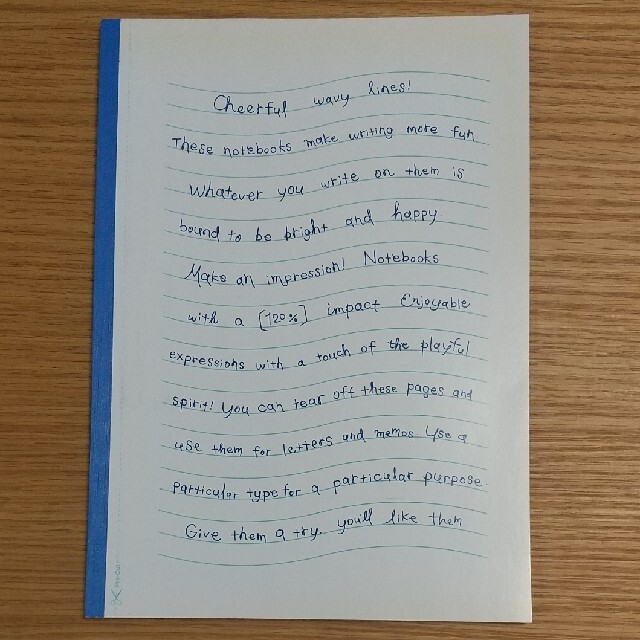 Cheerful wavy lines!
These notebooks make writing more fun
Whatever you write on them is
bound to be bright and happy
Make an impression! Notebooks
with a [120%] impact Enjoyable
expressions with a touch of the playful
spirit! You can tear off these pages and
use them for letters and memos Use a
particular type for a particular purpose
Give them a try. you'll like them